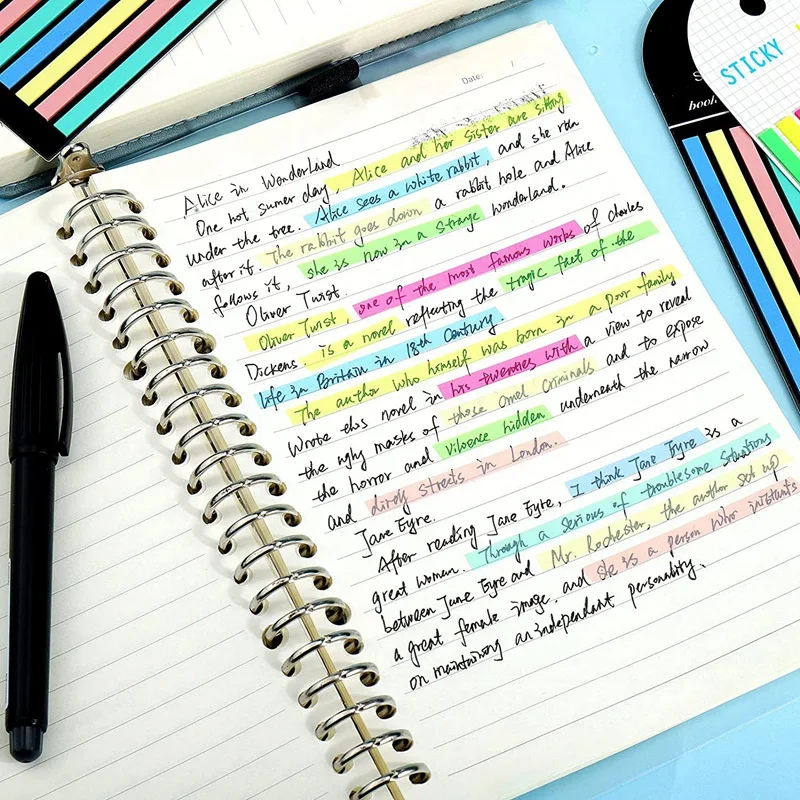 Date: /
Alice in Wonderland
One hot sumer day, Alice and her sister are sitting
under the tree. Alice sees a white rabbit, and she ran
after it. The rabbit goes down a rabbit hole and Alice
follows it, she is now in a strange wonderland.
Oliver Twist.
Oliver Twist, one of the most famous works of charles
Dickens. is a novel reflecting the tragic fact of the
life in Britain in 18th Century
The author who himself was born in a poor family
Wrote this novel in his twenties with a view to reveal
the ugly masks of those criminals and to expose
the horror and hidden underneath the narrow
and dirdy streets in London.
Jane Eyre.
After reading Jane Eyre, I think Jane Eyre is a
great woman. Through a serious of troublesome situations
between Jane Eyre and Mr. Rochester, the author set up
a great female image. and she is a person who
on maintaining an independant personality.
STICKY
book